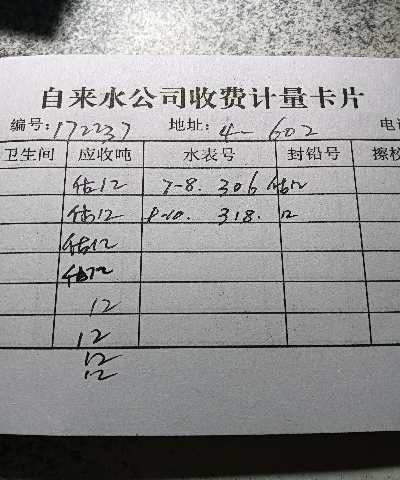 自来水公司收费计量卡片
编号:172237 地址:4-602 电
卫生间 应收吨 水表号 封铅号 擦校
估12 7-8. 306 估12
估12 8-10. 318. 12
估12
估12
12
12
12
12